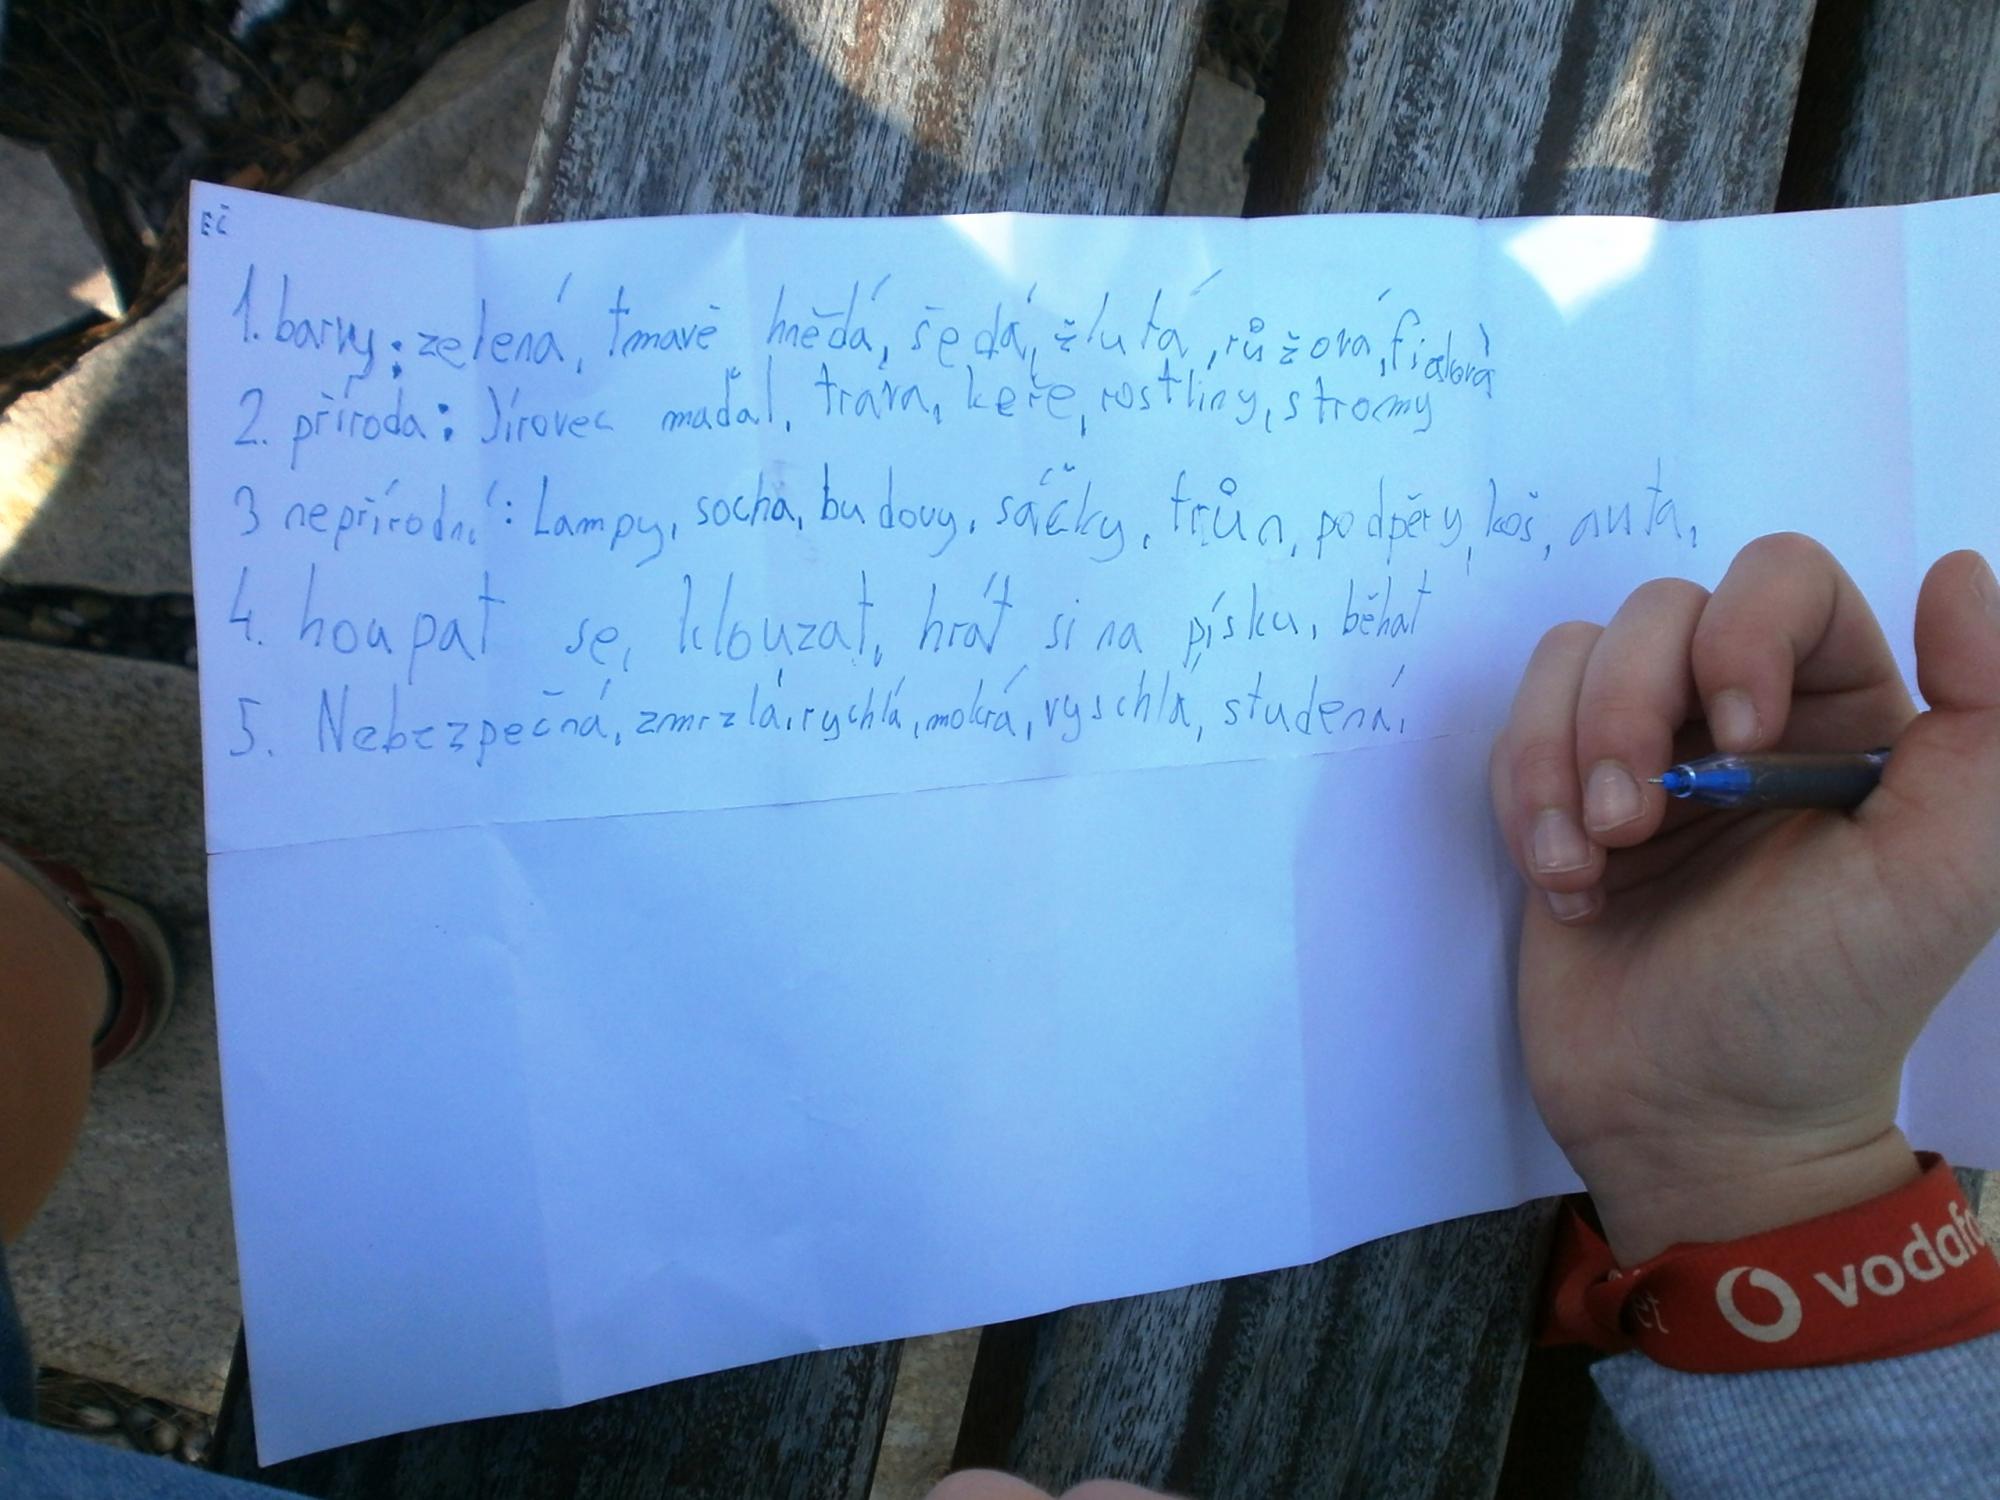 EČ
1. barvy: zelená, tmavě hnědá, šedá, žlutá, růžová, fialová
2. příroda: Jírovec maďal, tráva, keře, rostliny, stromy
3 nepřírodní: Lampy, socha, budovy, sáčky, trůn, podpěry, koš, auta,
4. houpat se, klouzat, hrát si na písku, běhat
5. Nebezpečná, zmrzlá, rychlá, mokrá, vyschlá, studená,
vodafo